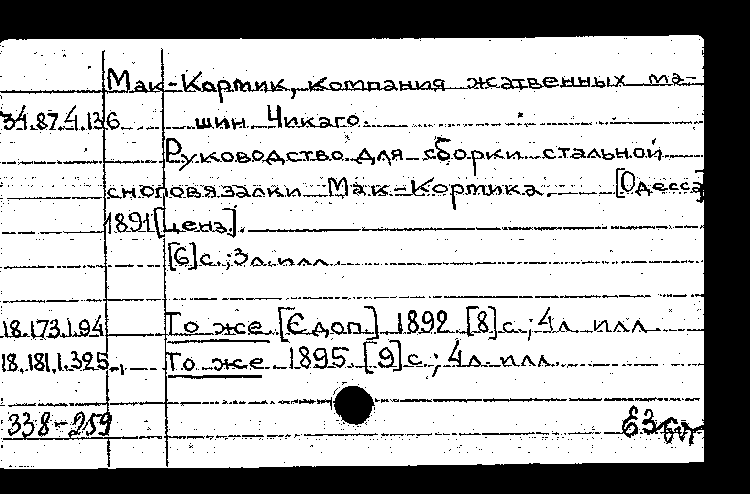 Мак-Кормик, компания жатвенных ма-
34.87.4.136 шин Чикаго.
Руководство для сборки стальной
сноповязалки Мак-Кормика. [Одесса]
1891 [ценз].
[6]с.; 3л. илл.
18.173.1.94 То же [С доп.] 1892 [8]с.; 4л илл.
18.181.1.325 То же 1895. [9]с.; 4л. илл.
338-259